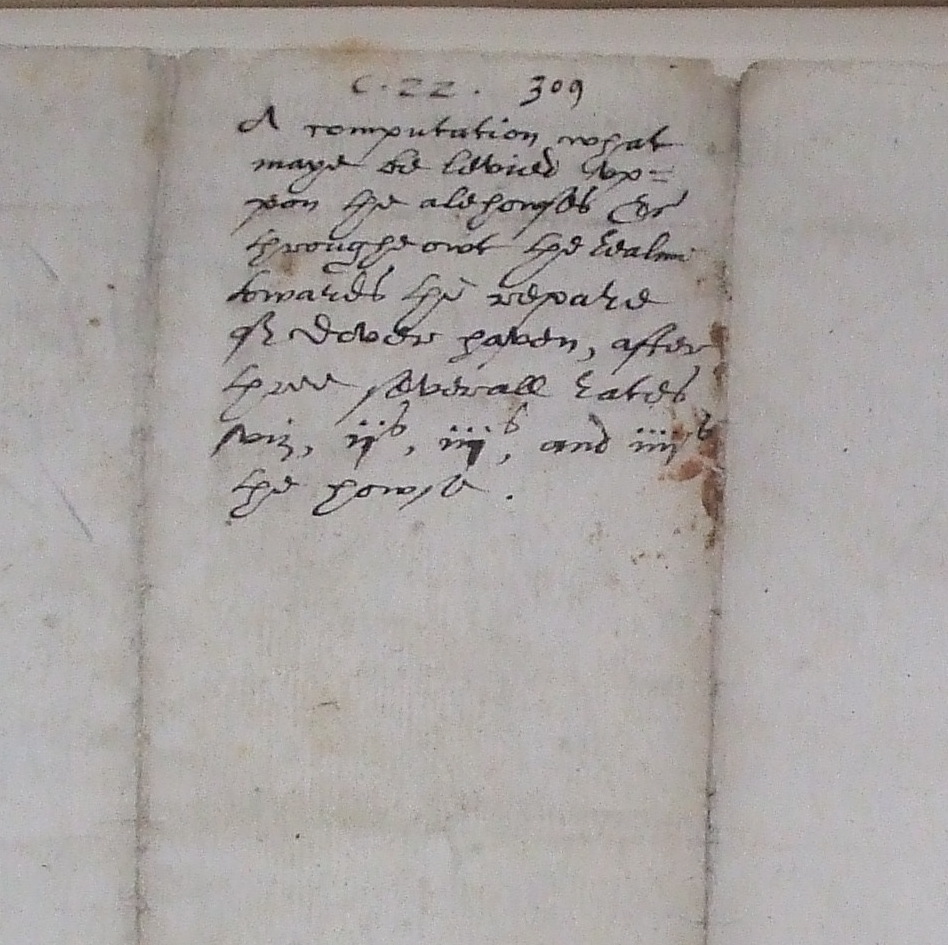 C. 22. 309
A computation what
maye be levied vp=
pon the alehowses &c
throughe owt the realme
towardes the repare
of Dover haven, after
three severall rates
viz, ijs, iijs, and iiijs
the howse.